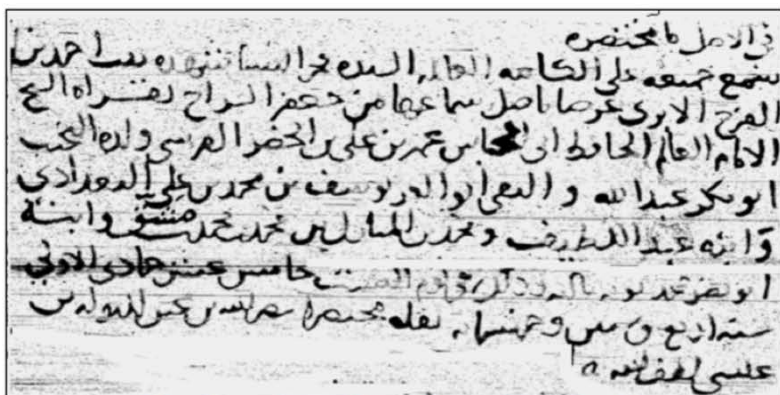 في الاصل ما مختصره
سمع جميعه على الكاتبه العالمه السيده فخر النسا شهده بنت احمد بن
الفرج الابري عرضا باصل سماعها من جعفر السراج بقراه الشيخ
الامام العالم الحافظ ابى المحاسن عمر بن على بن الخضر القرسى ولده النجيب
ابو بكر عبد الله و التقى ابو العز يوسف بن محمد بن على البغدادي
وابنه عبد اللطيف ومحمد بن المبارك بن محمد بن محمد بن مشق وابنه
ابو نصر محمد وذلك في يوم السبت خامس عشر جمادى الاولى
سنه اربع وستين وخمسمايه نقله مختصرا نصر الله بن
عيسى لطف الله به